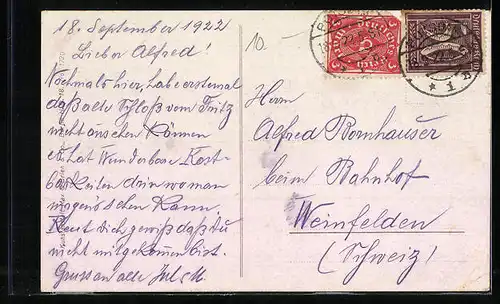 18. September 1922
10.-
Lieber Alfred!
Nochmals hier, habe erstemal
daß alte Schloß vom Fritz
nicht ansehen Können
er hat Wunderbare Kost-
barkeiten drin wo man
angesehen Kann.
Reut dich gewiß daß Du
nicht mitgekommen bist.
Gruss an alle
Herrn
Alfred Bornhauser
beim Bahnhof
Weinfelden
(Schweiz)
Deutsches Reich
5
* 1 B